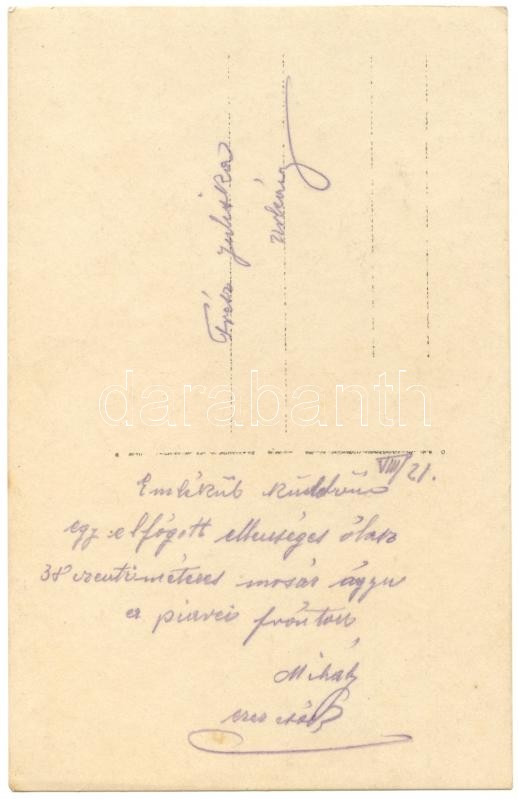 Juliska
darabanth
VIII/21.
Emlékűl küldvűn
egy elfógott ellenséges ólasz
38 czentiméteres mosár ágyu
a piavei frónton
Mihály